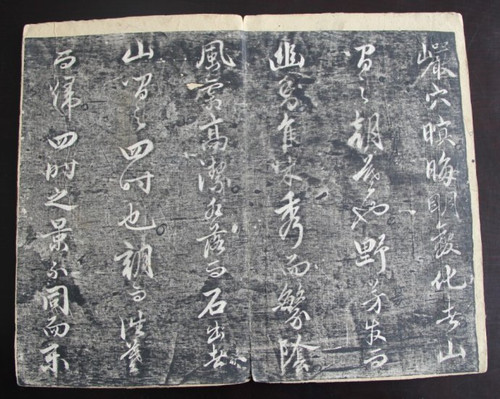 巖穴暝晦明變化者山
間之朝暮也野芳發而
幽香佳木秀而繁陰
風霜高潔水落而石出者
山間之四時也朝而往暮
而歸四時之景不同而樂